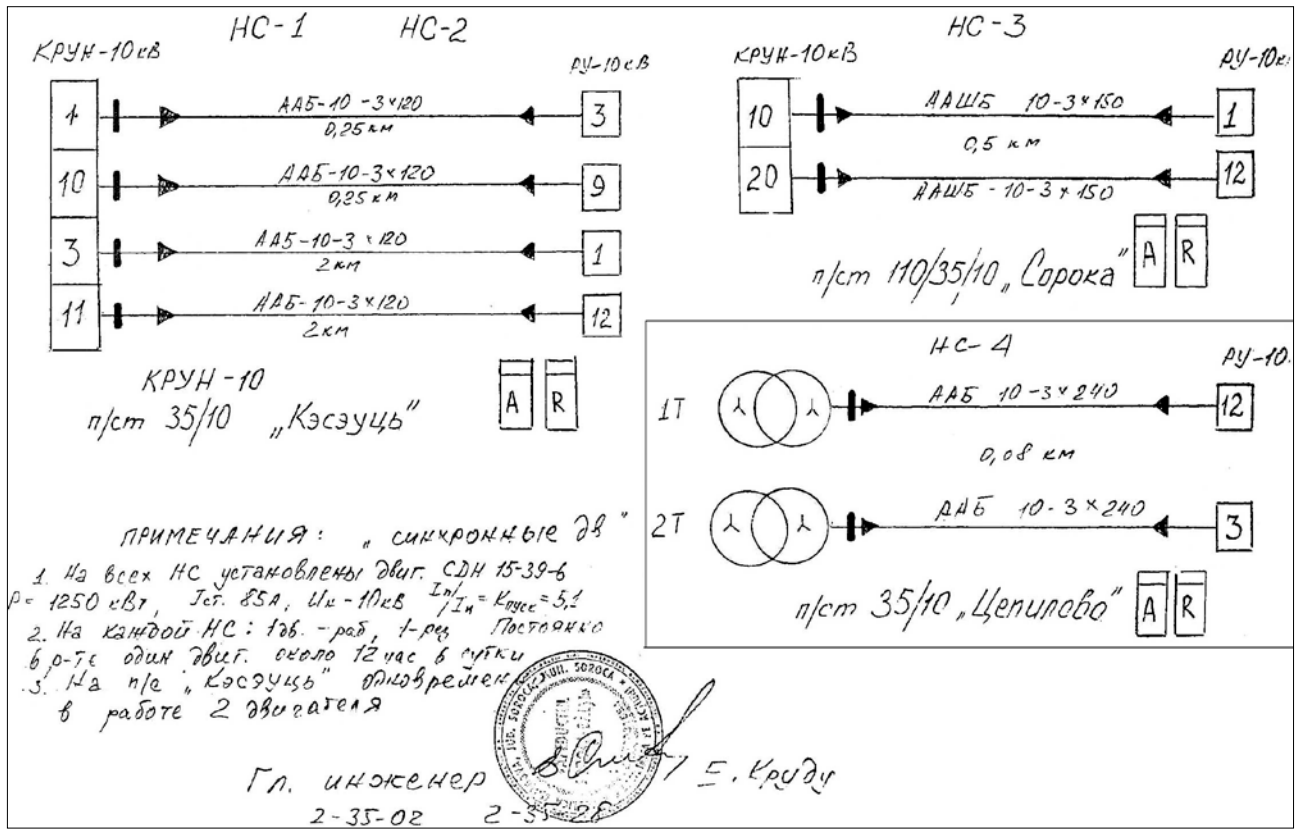 НС-1 НС-2
КРУН-10кВ
РУ-10кВ
1
ААБ-10-3×120
0,25 км
3
10
ААБ-10-3×120
0,25 км
9
3
ААБ-10-3×120
2 км
1
11
ААБ-10-3×120
2 км
12
КРУН-10
п/ст 35/10 „Кэсэуць"
A R
НС-3
КРУН-10кВ
РУ-10к
10
ААШБ 10-3×150
0,5 км
1
20
ААШБ-10-3×150
12
п/ст 110/35/10 „Сорока"
A R
НС-4
РУ-10
1Т
ААБ 10-3×240
12
0,08 км
2Т
ААБ 10-3×240
3
п/ст 35/10 „Цепилово"
A R
ПРИМЕЧАНИЯ: „синхронные дв"
1. На всех НС установлены двиг. СДН 15-39-6
P= 1250 кВт, Iст. 85А, Uн-10кВ Iп/Iн = Кпуск = 5,1
2. На каждой НС: 1дв.-раб, 1-рез Постоянно
в р-те один двиг. около 12 час в сутки
3. На п/с „Кэсэуць" одновремен
в работе 2 двигателя
JUD. SOROCA, MUN. SOROCA
Гл. инженер Е. Круду
2-35-02 2-35-28